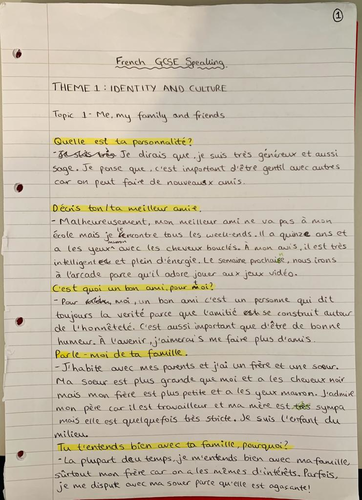 1
French GCSE Speaking
THEME 1: IDENTITY AND CULTURE
Topic 1 - Me, my family and friends
Quelle est ta personnalité?
- Je suis très Je dirais que, je suis très généreux et aussi
sage. Je pense que, c'est important d'être gentil avec autres
car on peut faire de nouveaux amis.
Décris ton/ta meilleur amie.
- Malheureusement, mon meilleur ami ne va pas à mon
école mais je le rencontre tous les week-ends. Il a quinze ans et
a les yeux marron avec les cheveux bouclés. À mon avis, il est très
intelligent et plein d'énergie. Le semaine prochaine, nous irons
à l'arcade parce qu'il adore jouer aux jeux vidéo.
C'est quoi un bon ami, pour moi?
- Pour moi, un bon ami c'est un personne qui dit
toujours la verité parce que l'amitié se construit autour
de l'honnêteté. C'est aussi important que d'être de bonne
humeur. À l'avenir, j'aimerais me faire plus d'amis.
Parle-moi de ta famille.
- J'habite avec mes parents et j'ai un frère et une sœur.
Ma soeur est plus grande que moi et a les cheveux noir
mais mon frère est plus petite et a les yeux marron. J'admire
mon père car il est travailleur et ma mère est très sympa
mais elle est quelquefois très stricte. Je suis l'enfant du
milieu.
Tu t'entends bien avec ta famille, pourquoi?
- La plupart du temps, je m'entends bien avec ma famille,
surtout mon frère car on a les mêmes d'intérêts. Parfois,
je me dispute avec ma soeur parce qu'elle est agaçante!